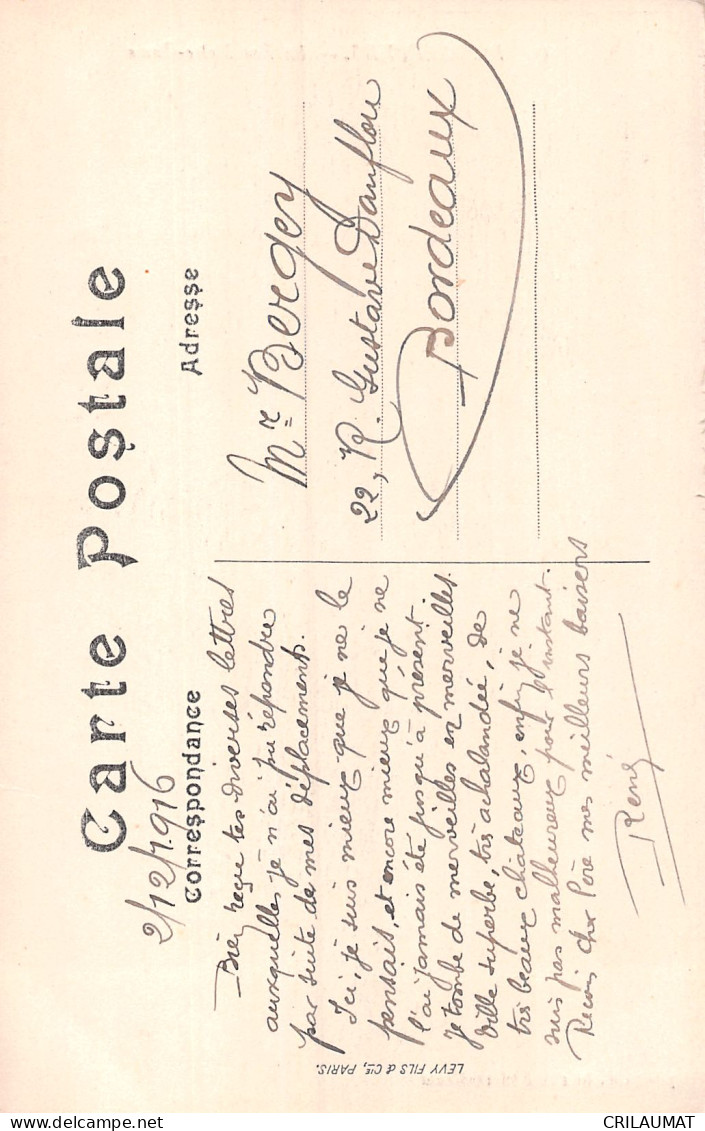 Carte Postale
Correspondance
Adresse
2/12/1916
Bien reçue tes diverses lettres
auxquelles je n'ai pu répondre
par suite de mes déplacements.
Ici, je suis mieux que je ne le
pensais, et encore mieux que je ne
l'ai jamais été jusqu'à présent.
Je tombe de merveilles en merveilles.
Ville superbe, très achalandée, de
très beaux châteaux, enfin je ne
suis pas malheureux pour l'instant.
Reçois cher Père mes meilleurs baisers
René
Mr Bergey
22, R. Gustave Danflou
Bordeaux
LEVY FILS & Cie, PARIS.
CRILAUMAT